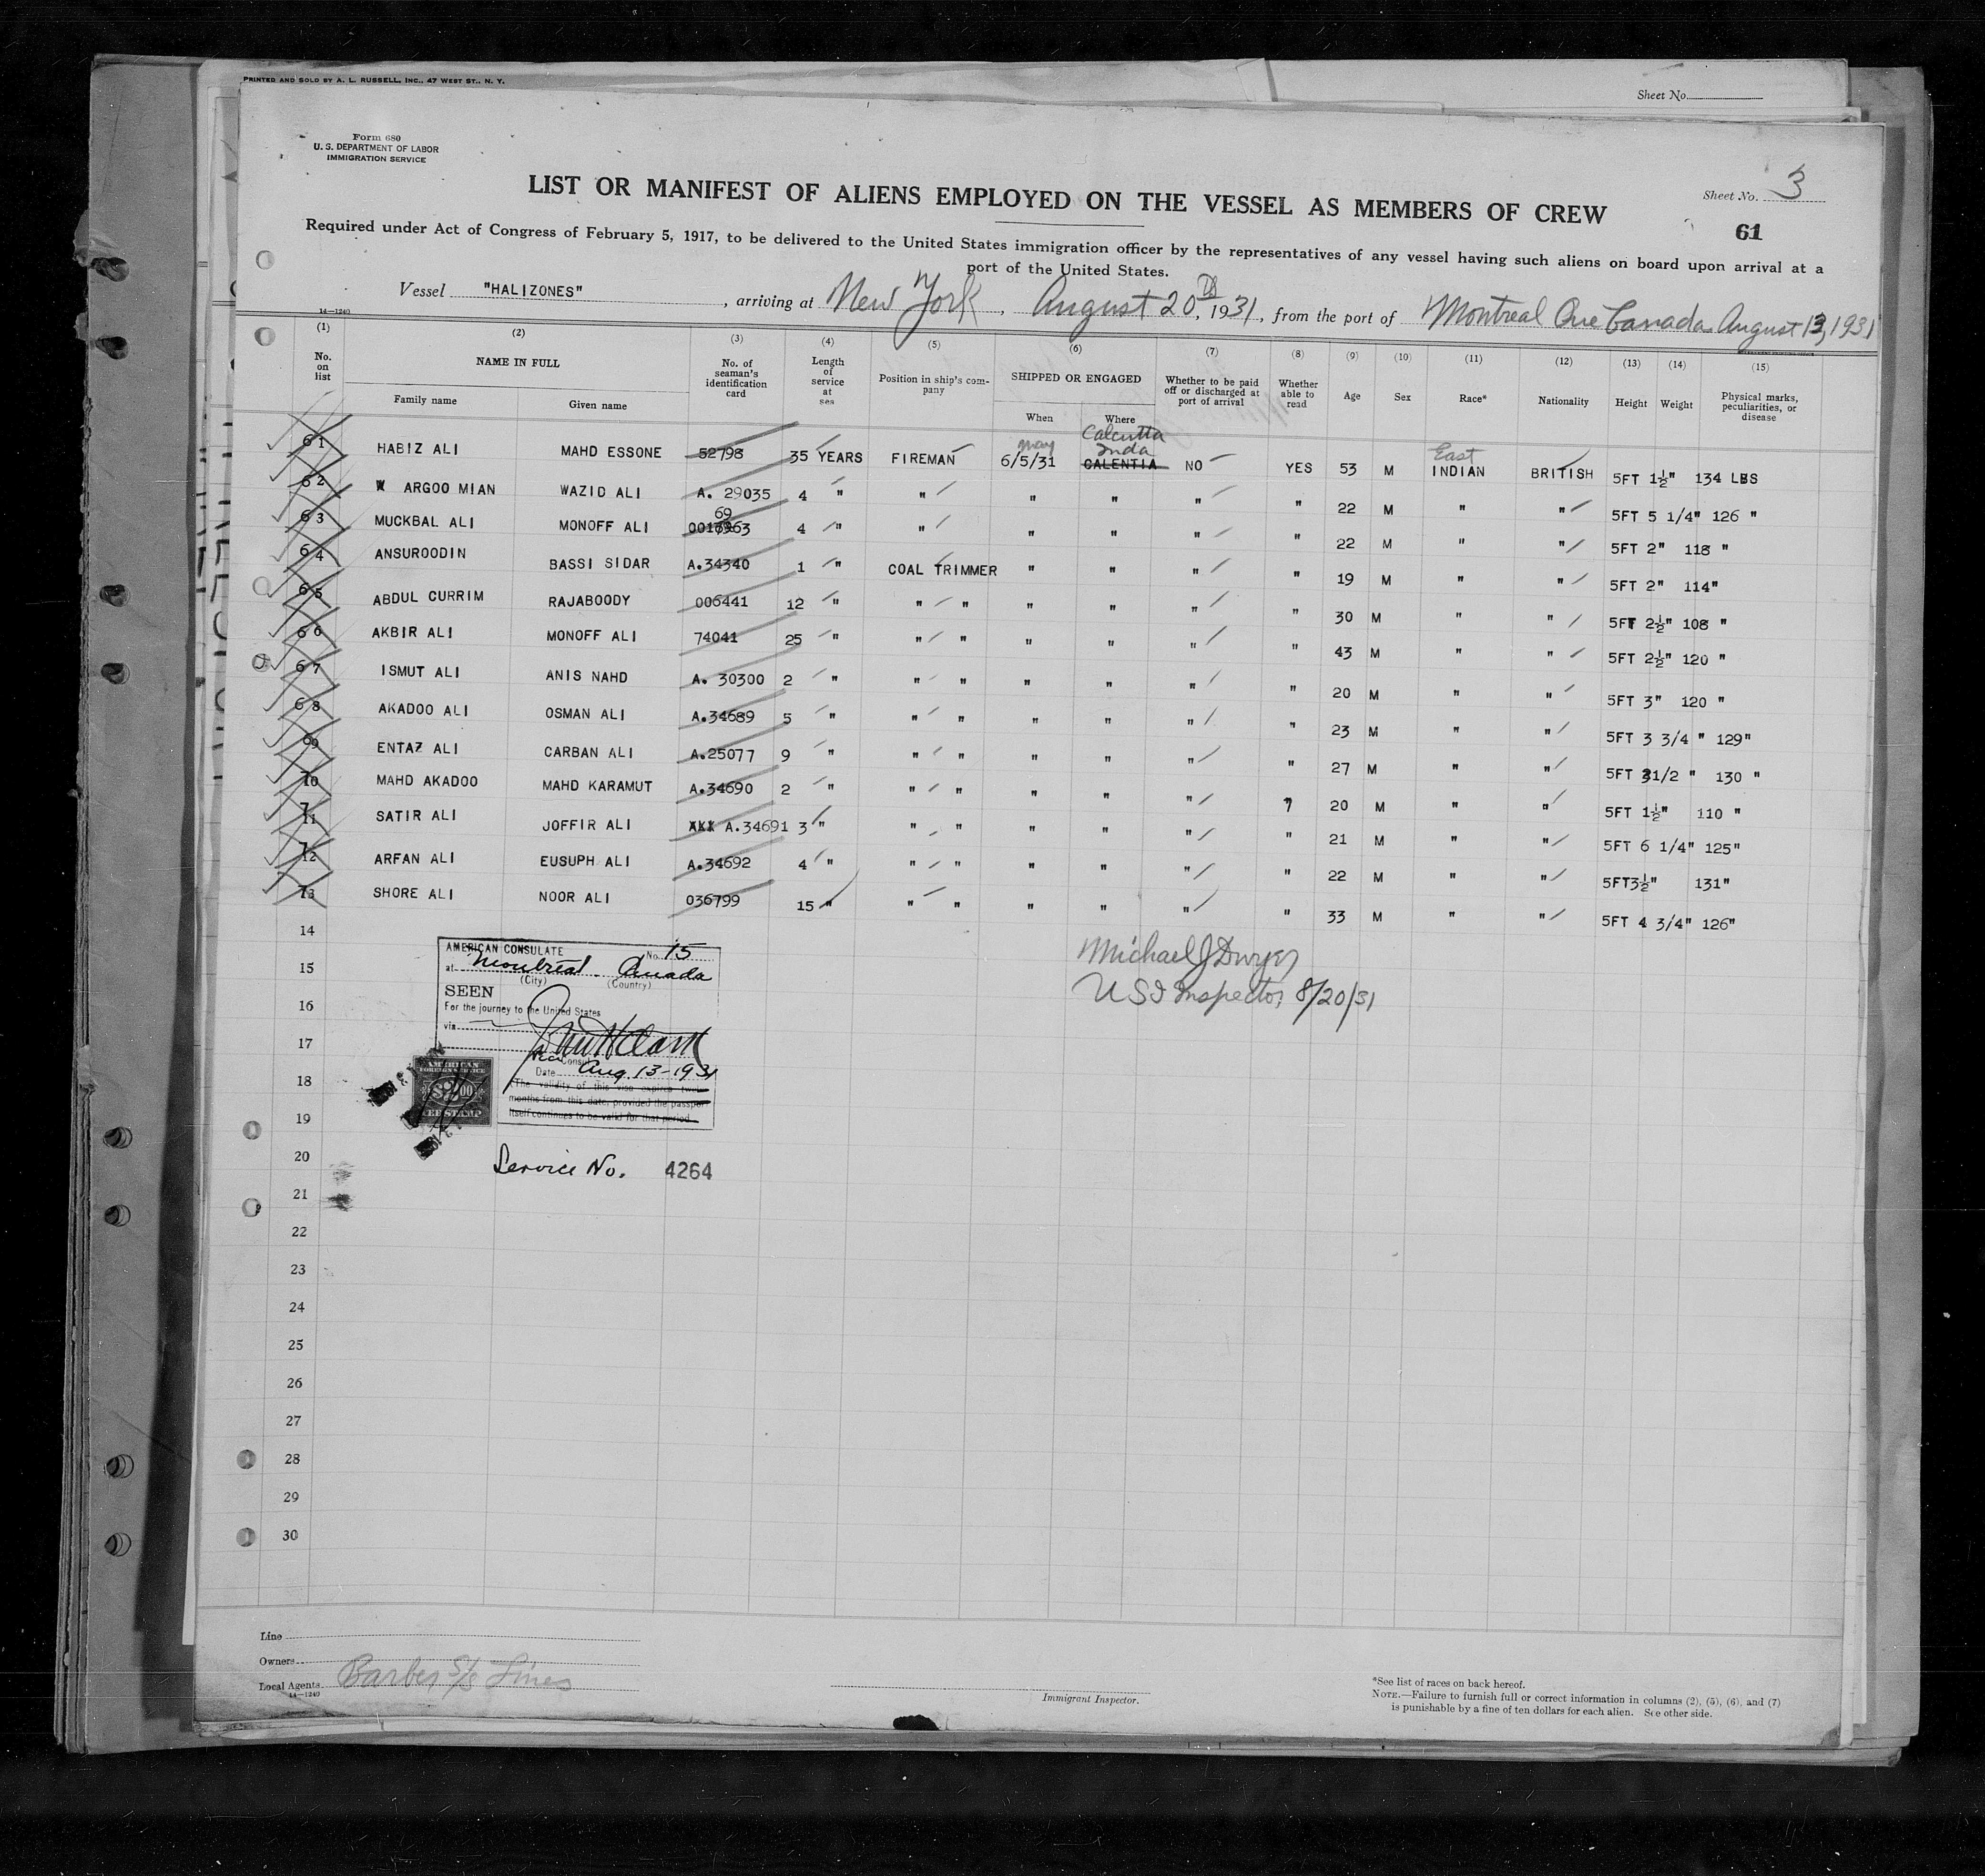 PRINTED AND SOLD BY A. L. RUSSELL, INC., 47 WEST ST., N. Y.
Sheet No.
Form 680
U. S. DEPARTMENT OF LABOR
IMMIGRATION SERVICE
Sheet No. 3
LIST OR MANIFEST OF ALIENS EMPLOYED ON THE VESSEL AS MEMBERS OF CREW
61
Required under Act of Congress of February 5, 1917, to be delivered to the United States immigration officer by the representatives of any vessel having such aliens on board upon arrival at a
port of the United States.
Vessel "HALIZONES", arriving at New York, August 20, 1931, from the port of Montreal Que Canada August 13, 1931
14—1240
(1) (2) (3) (4) (5) (6) (7) (8) (9) (10) (11) (12) (13) (14) (15)
No. on list
NAME IN FULL
Family name Given name
No. of seaman's identification card
Length of service at sea
Position in ship's company
SHIPPED OR ENGAGED
When Where
Whether to be paid off or discharged at port of arrival
Whether able to read
Age
Sex
Race*
Nationality
Height
Weight
Physical marks, peculiarities, or disease
May Calcutta India East
61 HABIZ ALI MAHD ESSONE 52798 35 YEARS FIREMAN 6/5/31 CALENTIA NO YES 53 M INDIAN BRITISH 5FT 1½" 134 LBS
62 ARGOO MIAN WAZID ALI A. 29035 4 " " " " " " 22 M " " 5FT 5 1/4" 126 "
69
63 MUCKBAL ALI MONOFF ALI 4 " " " " " " 22 M " " 5FT 2" 118 "
64 ANSUROODIN BASSI SIDAR A.34340 1 " COAL TRIMMER " " " " 19 M " " 5FT 2" 114"
65 ABDUL CURRIM RAJABOODY 006441 12 " " " " " " " 30 M " " 5FT 2½" 108 "
66 AKBIR ALI MONOFF ALI 74041 25 " " " " " " " 43 M " " 5FT 2½" 120 "
67 ISMUT ALI ANIS NAHD A. 30300 2 " " " " " " " 20 M " " 5FT 3" 120 "
68 AKADOO ALI OSMAN ALI A.34689 5 " " " " " " " 23 M " " 5FT 3 3/4 " 129"
69 ENTAZ ALI CARBAN ALI A.25077 9 " " " " " " " 27 M " " 5FT 31/2 " 130 "
70 MAHD AKADOO MAHD KARAMUT A.34690 2 " " " " " " 7 20 M " " 5FT 1½" 110 "
71 SATIR ALI JOFFIR ALI A.34691 3 " " " " " " " 21 M " " 5FT 6 1/4" 125"
72 ARFAN ALI EUSUPH ALI A.34692 4 " " " " " " " 22 M " " 5FT3½" 131"
73 SHORE ALI NOOR ALI 036799 15 " " " " " " " 33 M " " 5FT 4 3/4" 126"
14
15
16
17
18
19
20
21
22
23
24
25
26
27
28
29
30
Michael J Dwyer
USI Inspector 8/20/31
AMERICAN CONSULATE No. 15
at Montreal Canada
(City) (Country)
SEEN
For the journey to the United States
via
John H Clark
Vice Consul
Date Aug. 13-1931
(The validity of this visa expires twelve
months from this date, provided the passport
itself continues to be valid for that period
AMERICAN
FOREIGN SERVICE
$2.00
FEE STAMP
Service No. 4264
Line
Owners
Local Agents Barber S/S Lines
14—1240
Immigrant Inspector.
*See list of races on back hereof.
NOTE.—Failure to furnish full or correct information in columns (2), (5), (6), and (7)
is punishable by a fine of ten dollars for each alien. See other side.